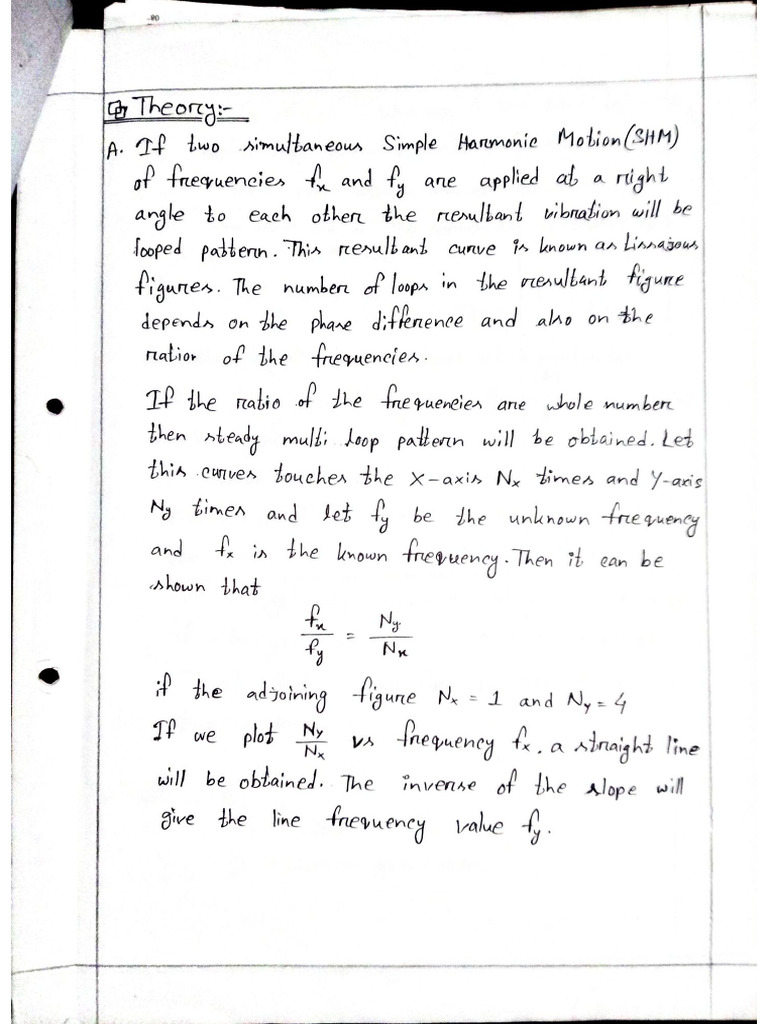 Theory:-
A. If two simultaneous Simple Harmonic Motion (SHM)
of frequencies fx and fy are applied at a right
angle to each other the resultant vibration will be
looped pattern. This resultant curve is known as Lissajous
figures. The number of loops in the resultant figure
depends on the phase difference and also on the
ratior of the frequencies.
If the ratio of the frequencies are whole number
then steady multi loop pattern will be obtained. Let
this curves touches the X-axis Nx times and Y-axis
Ny times and let fy be the unknown frequency
and fx is the known frequency. Then it can be
shown that
fx/fy = Ny/Nx
if the adjoining figure Nx = 1 and Ny = 4
If we plot Ny/Nx vs frequency fx, a straight line
will be obtained. The inverse of the slope will
give the line frequency value fy.